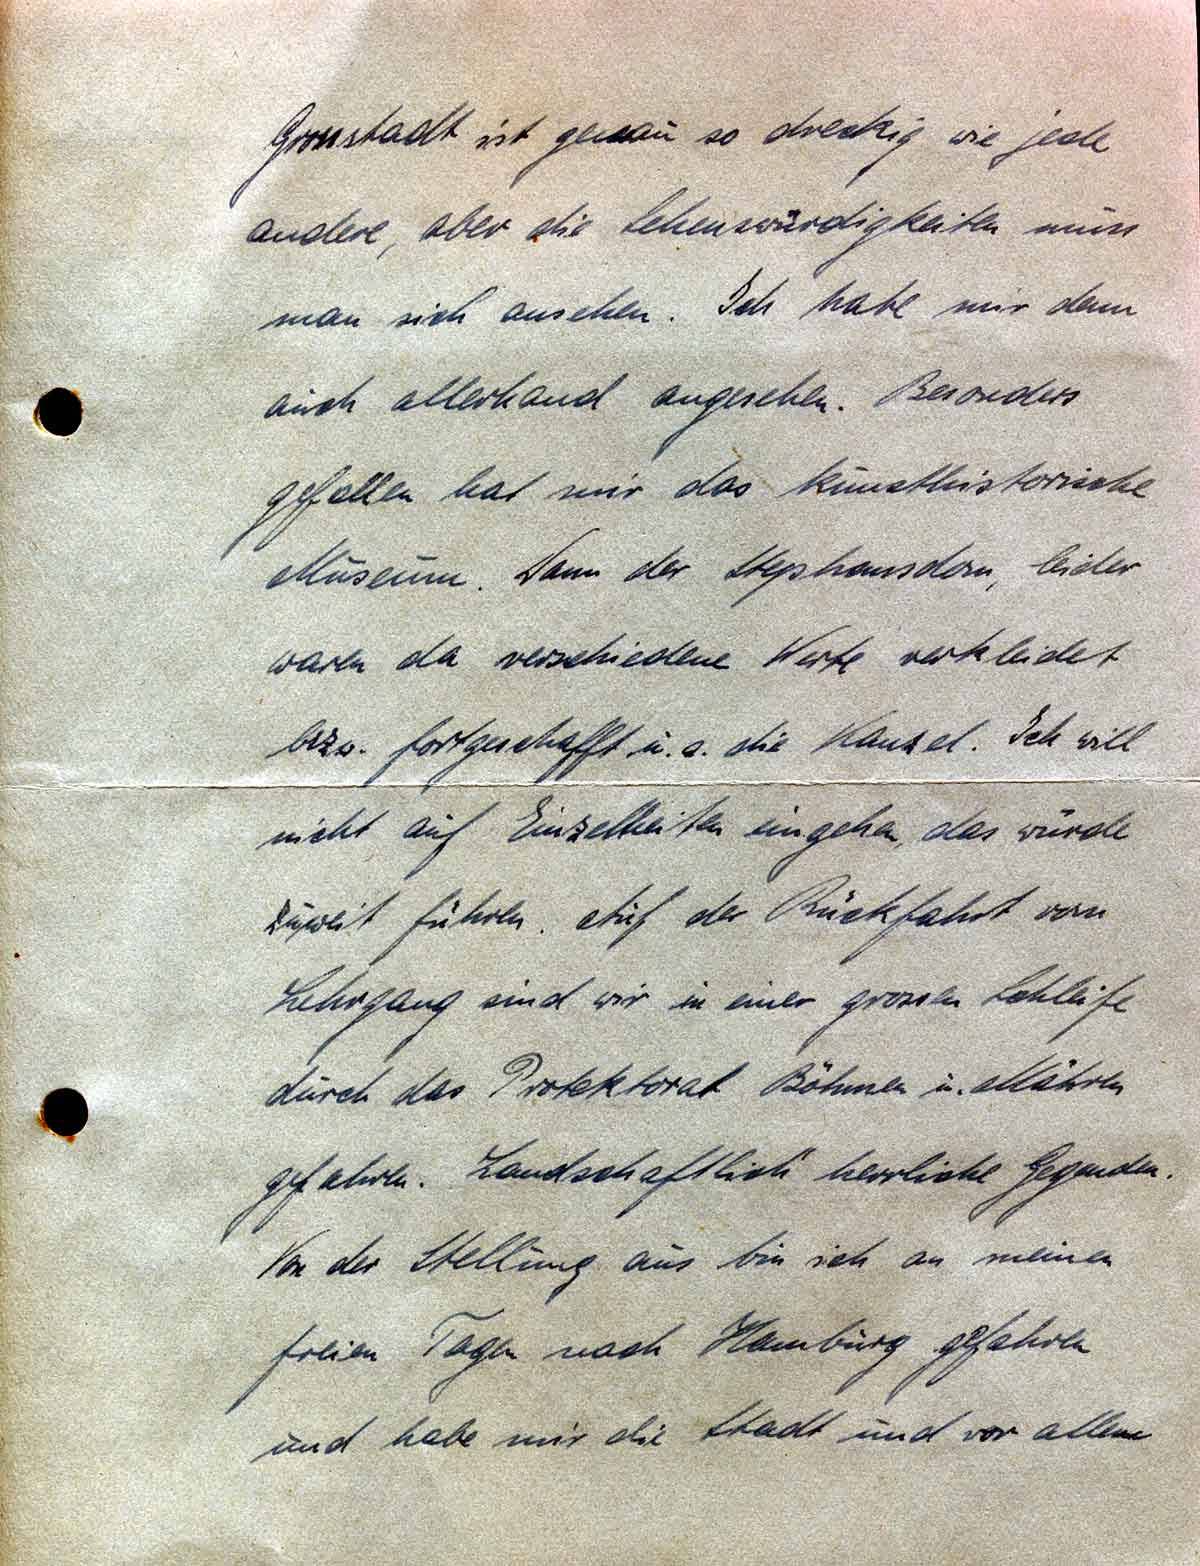 Grosstadt ist genau so dreckig wie jede
andere, aber die Sehenswürdigkeiten muss
man sich ansehen. Ich habe mir denn
auch allerhand angesehen. Besonders
gefallen hat mir das kunsthistorische
Museum. Dann der Stephansdom, leider
waren da verschiedene Werke verkleidet
bzw. fortgeschafft u. a. die Kanzel. Ich will
nicht auf Einzelheiten eingehen, das würde
zuweit führen. Auf der Rückfahrt vom
Lehrgang sind wir in einer grossen Schleife
durch das Protektorat Böhmen u. Mähren
gefahren. Landschaftlich herrliche Gegenden.
Von der Stellung aus bin ich an meinen
freien Tagen nach Hamburg gefahren
und habe mir die Stadt und vor allem